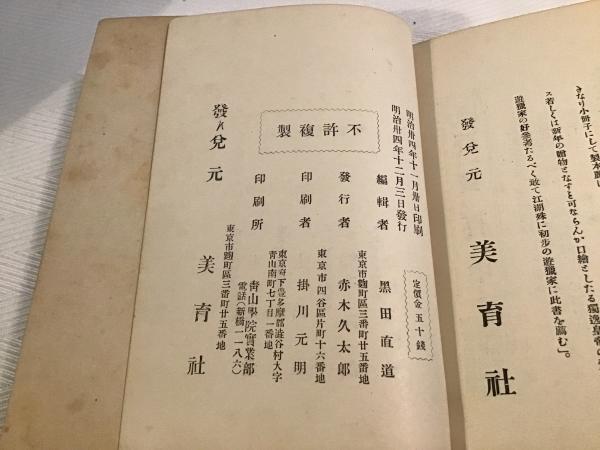 きなり小冊子にして製本
ス若しくは新年の贈物となすを可ならんか口繪としたる獨逸皇帝の
遊獵家の好参考たるべく敢て江湖殊に初步の遊獵家に此書を薦む」。
發兌元
美育社
明治卅四年十一月卅日印刷
明治卅四年十二月三日發行
定價金五十錢
不許複製
編輯者
黑田直道
東京市麴町區三番町廿五番地
發行者
赤木久太郎
東京市四谷區片町十六番地
印刷者
掛川元明
東京府下豊多摩郡澁谷村大字
青山南町七丁目一番地
印刷所
靑山學院實業部
電話(新橋一一八六)
東京市麴町區三番町廿五番地
發兌元
美育社